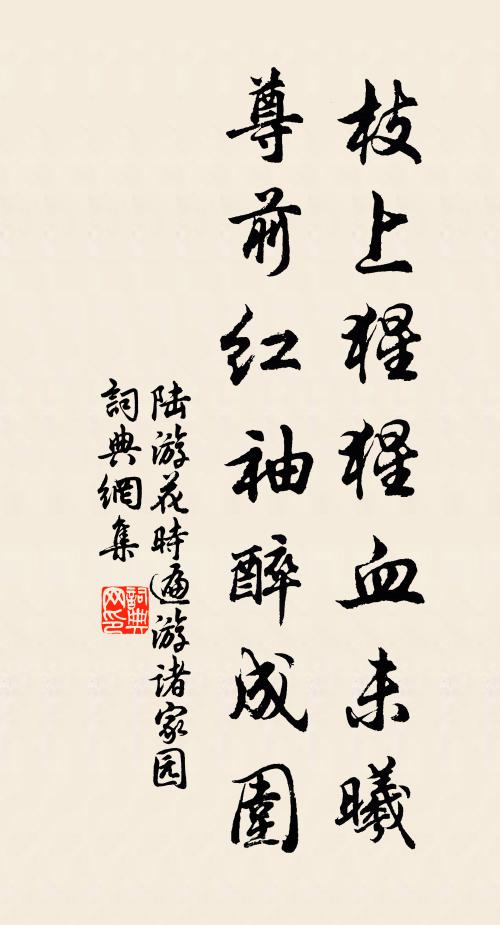 枝上猩猩血未曦
尊前红袖醉成圍
陆游花時遍游诸家园
詞典網集
詞典网印